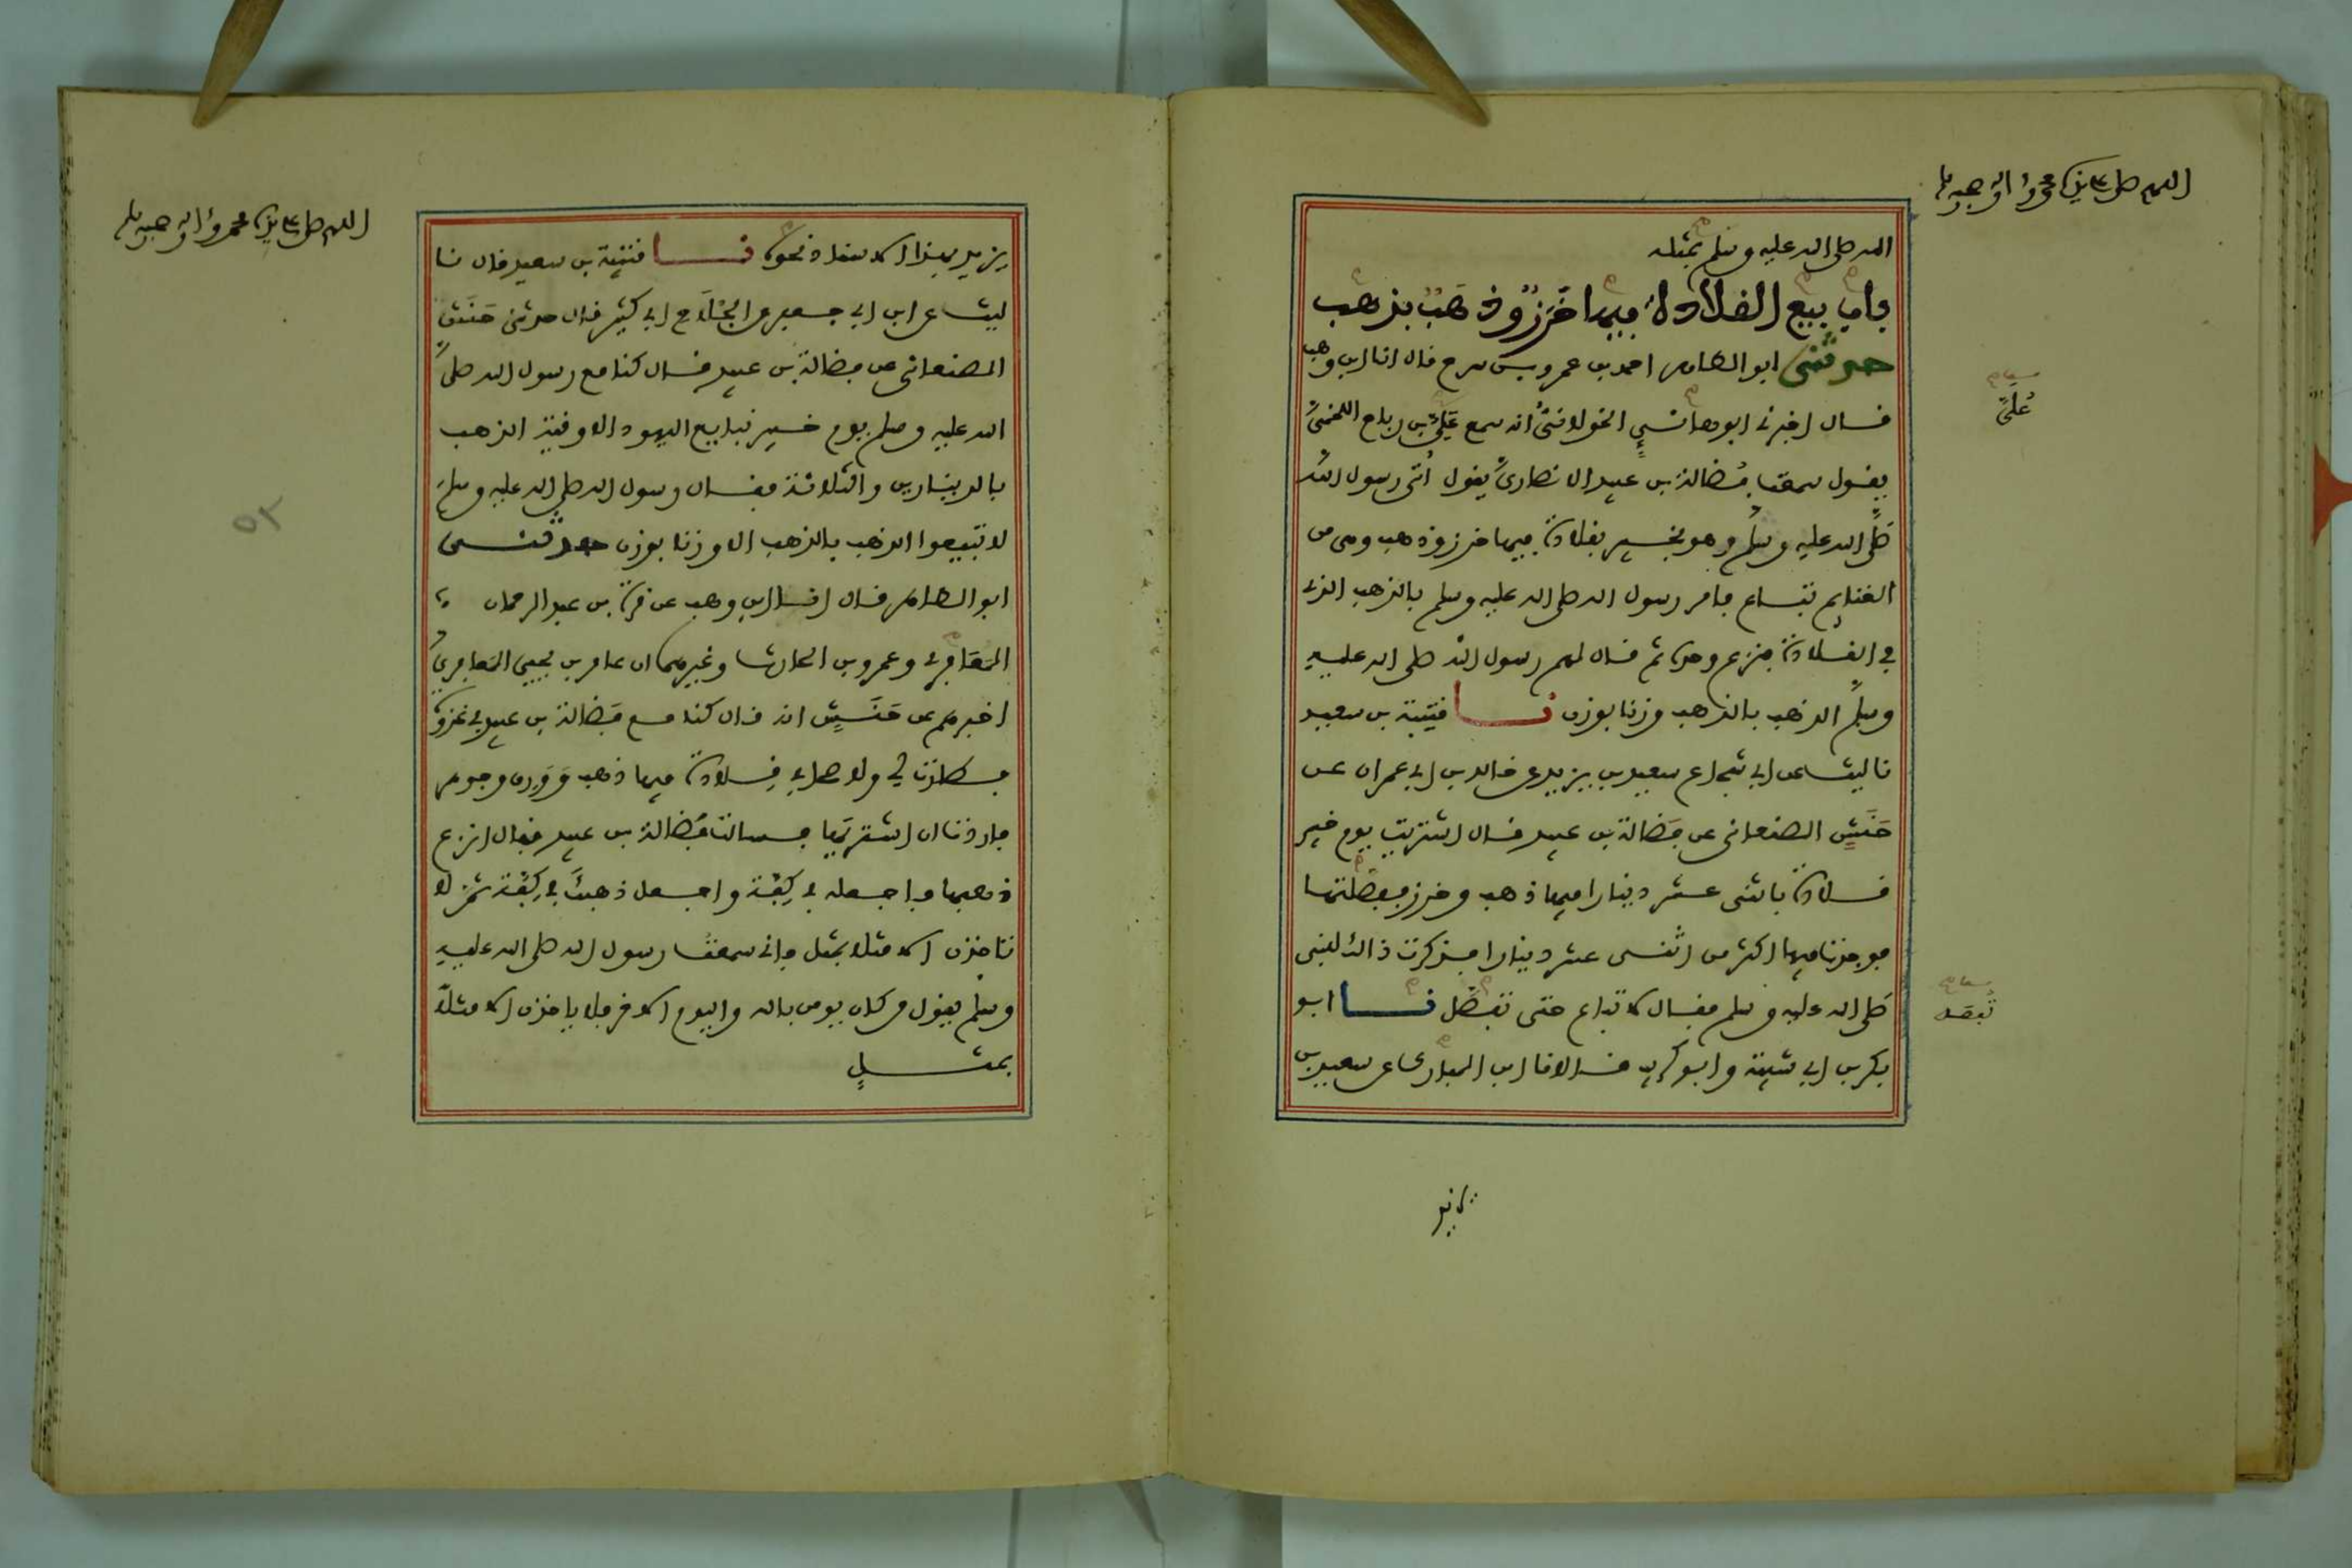 اللهم صل على سيدنا محمد وآله وصحبه وسلم
الله صلى الله عليه وسلم بمثله
باب بيع القلادة فيها خرز وذهب بذهب
حدثني ابو الطاهر احمد بن عمرو بن سرح قال انا ابن وهب
قال اخبرني ابو هانئ الخولاني انه سمع علي بن رباح اللخمي
يقول سمعت فضالة بن عبيد الانصاري يقول أتى رسول الله
صلى الله عليه وسلم وهو بخيبر بقلادة فيها خرز وذهب وهي من
الغنايم تباع فامر رسول الله صلى الله عليه وسلم بالذهب الذي
في القلادة فنزع وحده ثم قال لهم رسول الله صلى الله عليه
وسلم الذهب بالذهب وزنا بوزن نا قتيبة بن سعيد
نا ليث عن ابي شجاع سعيد بن يزيد عن خالد بن ابي عمران عن
حنش الصنعاني عن فضالة بن عبيد قال اشتريت يوم خيبر
قلادة باثنى عشر دينارا فيها ذهب وخرز ففصلتها
فوجدت فيها اكثر من اثنى عشر دينارا فذكرت ذالك للنبي
صلى الله عليه وسلم فقال لا تباع حتى تفصل نا ابو
بكر بن ابي شيبة وابو كريب قالا نا ابن المبارك عن سعيد بن
عُلَيّ
تفصل
يزيد
اللهم صل على سيدنا محمد وآله وصحبه وسلم
يزيد بهذا الاسناد نحوه نا قتيبة بن سعيد قال نا
ليث عن ابن ابي جعفر عن الجلاح ابي كثير قال حدثني حنش
الصنعاني عن فضالة بن عبيد قال كنا مع رسول الله صلى
الله عليه وسلم يوم خيبر نبايع اليهود الاوقية الذهب
بالدينارين والثلاثة فقال رسول الله صلى الله عليه وسلم
لا تبيعوا الذهب بالذهب الا وزنا بوزن حدثني
ابو الطاهر قال انا ابن وهب عن قرة بن عبد الرحمان
المعافري وعمرو بن الحارث وغيرهما ان عامر بن يحيى المعافري
اخبرهم عن حنش انه قال كنا مع فضالة بن عبيد في غزوة
فطارت لي ولاصحابي قلادة فيها ذهب وورق وجوهر
فاردت ان اشتريها فسالت فضالة بن عبيد فقال انزع
ذهبها فاجعله في كفة واجعل ذهبك في كفة ثم لا
تاخذن الا مثلا بمثل فاني سمعت رسول الله صلى الله عليه
وسلم يقول من كان يومن بالله واليوم الاخر فلا ياخذن الا مثلا
بمثل
٥٢